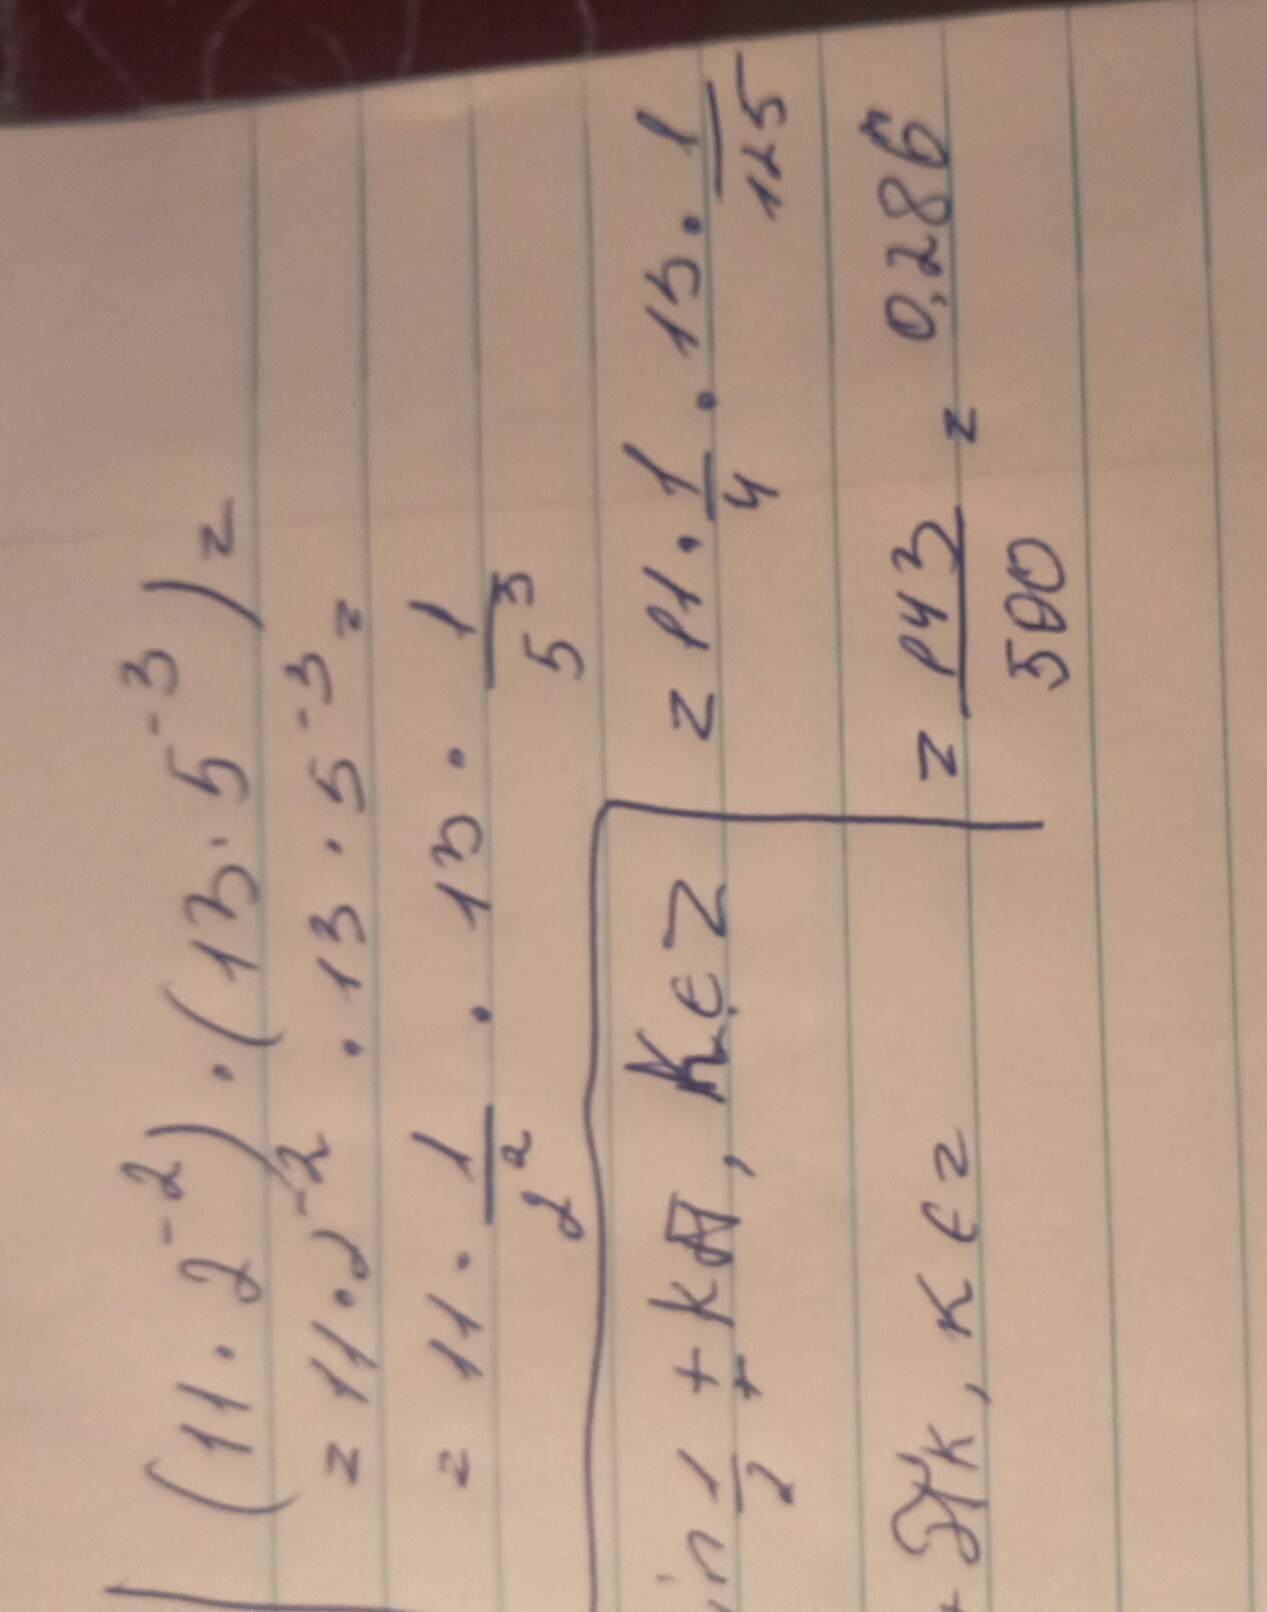 (11 · 2⁻²) · (13 · 5⁻³) =
= 11 · 2⁻² · 13 · 5⁻³ =
= 11 · 1/2² · 13 · 1/5³
= 11 · 1/4 · 13 · 1/125
= 143/500 = 0,286
in 1/2 + kπ, k ∈ Z
k, k ∈ Z